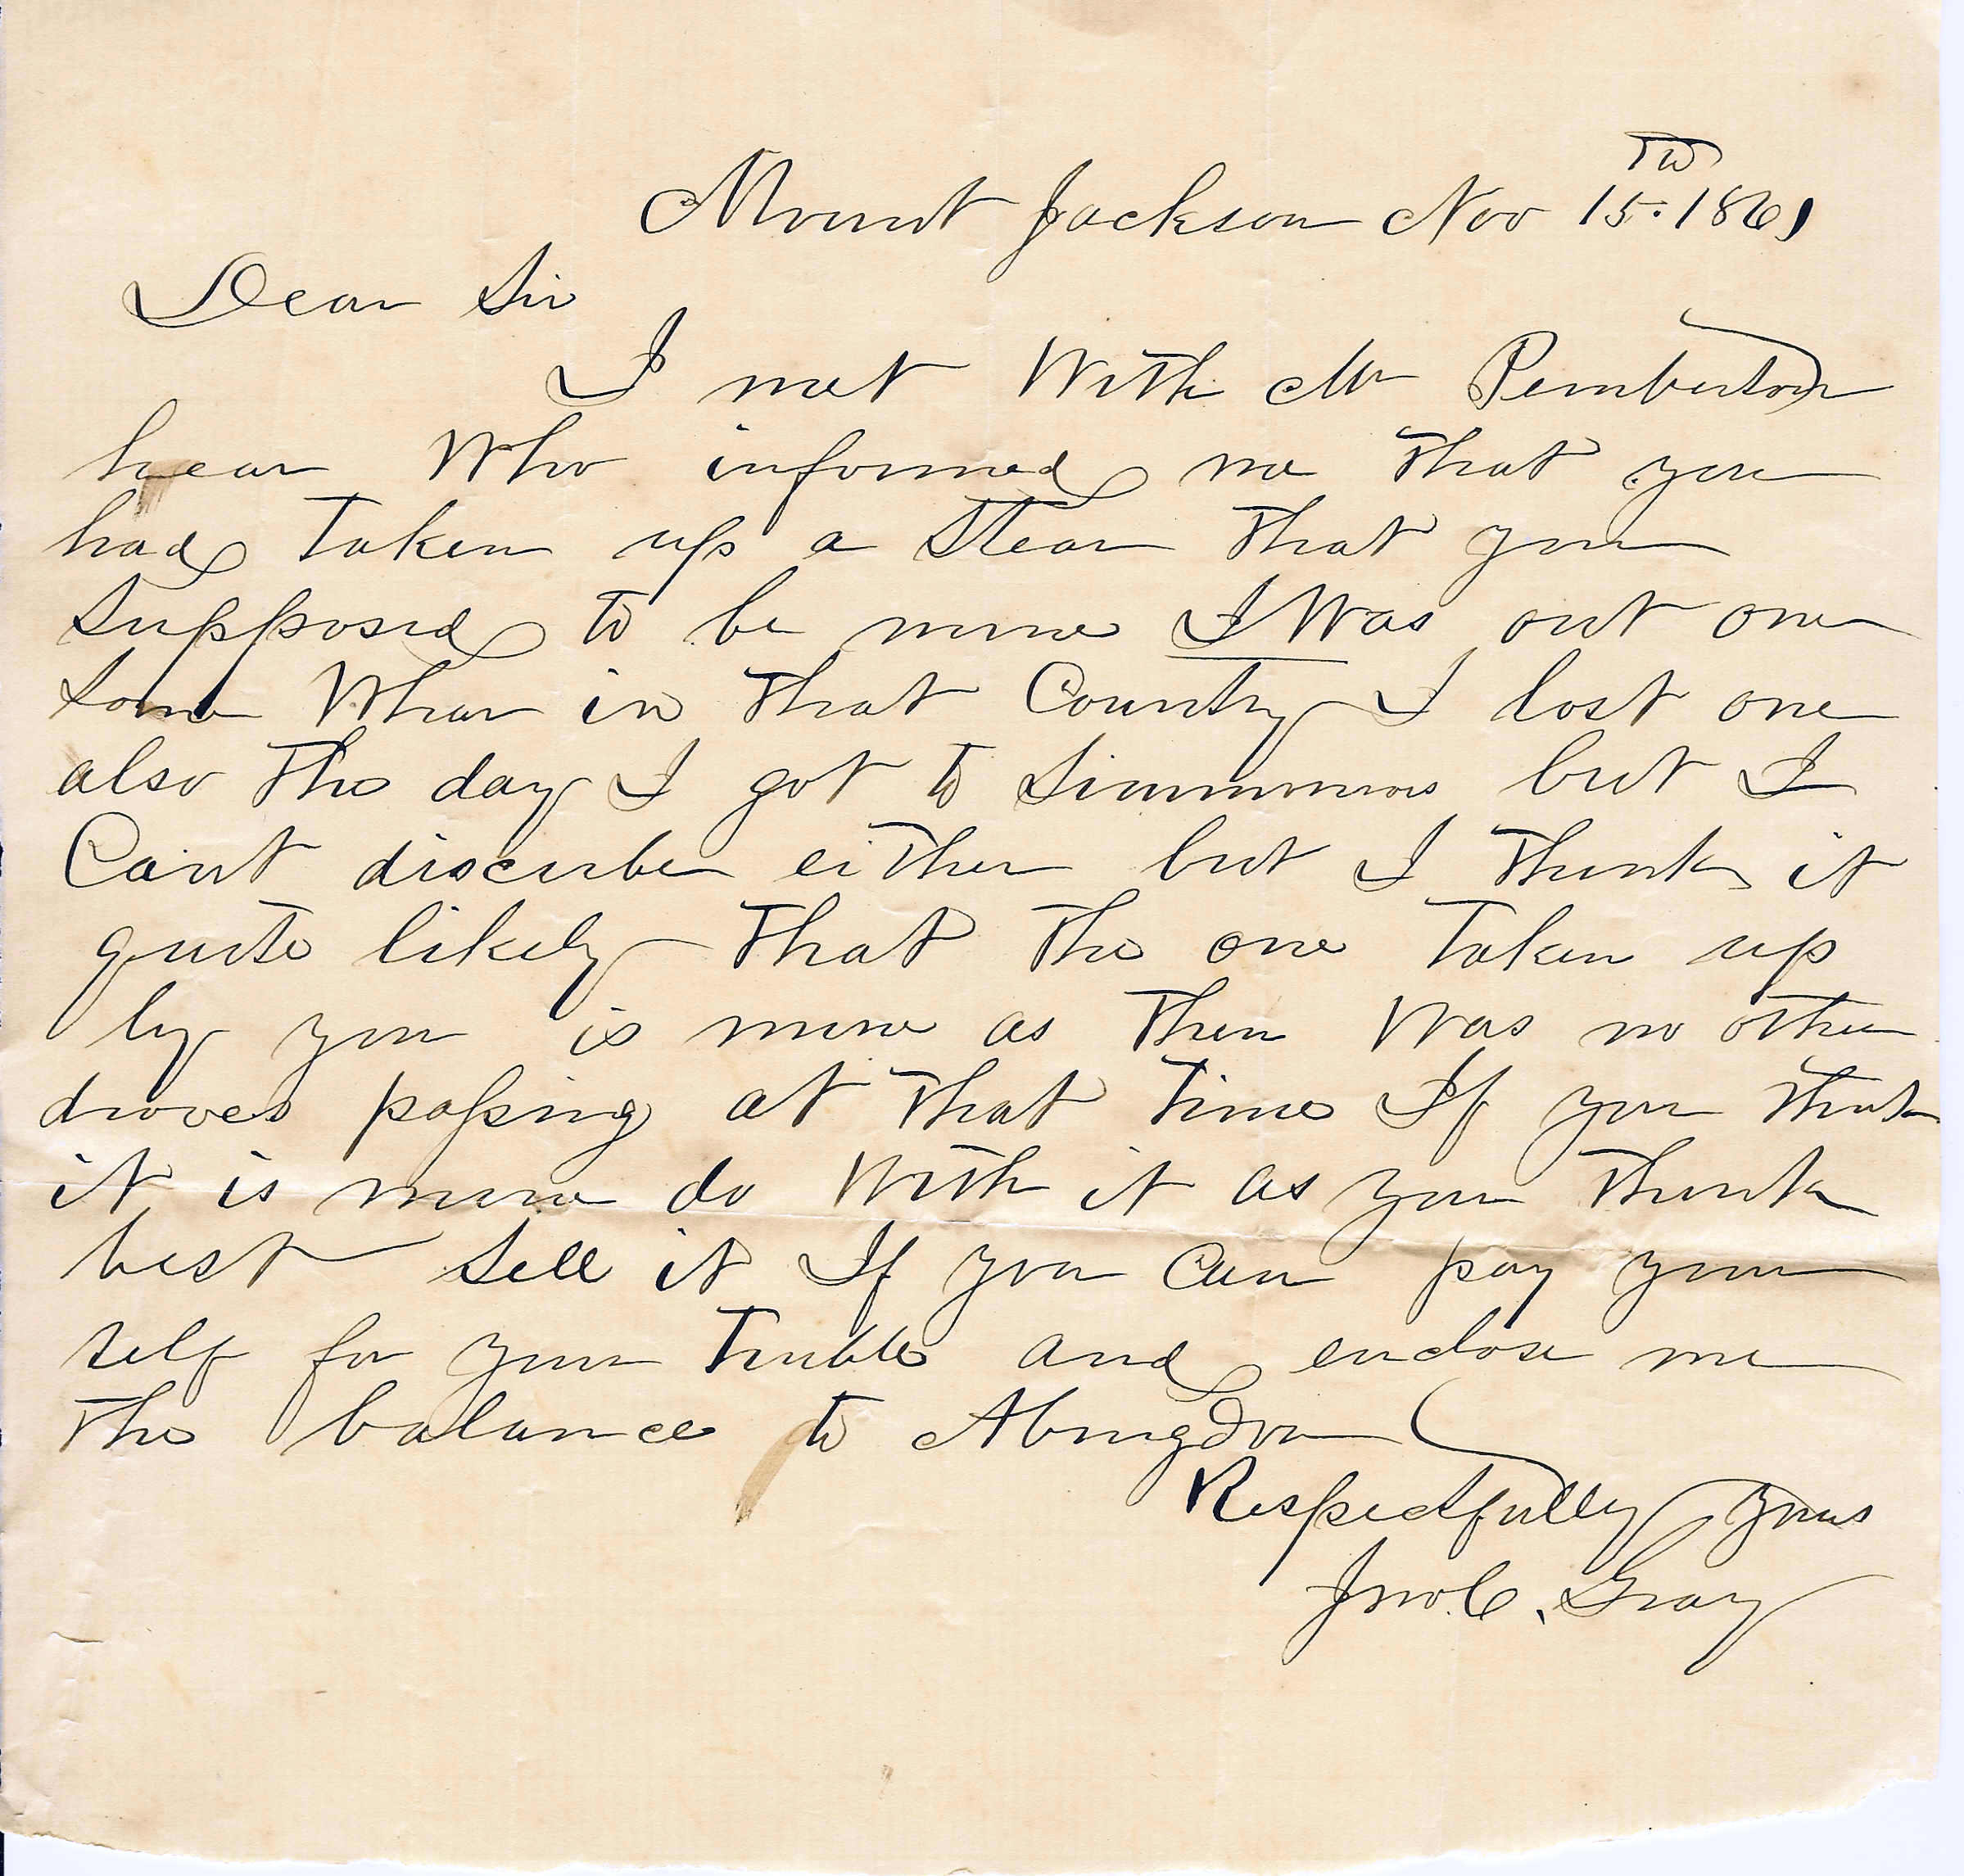 Mount Jackson Nov 15th. 1861
Dear Sir
I met With Mr Pemberton
hear Who informed me that you
had taken up a Stear that you
supposed to be mine I Was out one
some Whar in that Country I lost one
also the day I got to Simmmons but I
Cant discribe either but I think it
quite likely that the one taken up
by you is mine as their Was no other
droves passing at that time If you think
it is mine do With it as you think
best sell it If you can pay your
self for your truble and enclose me
the balance to Abingdon
Respectfully yours
Jno C. Gray